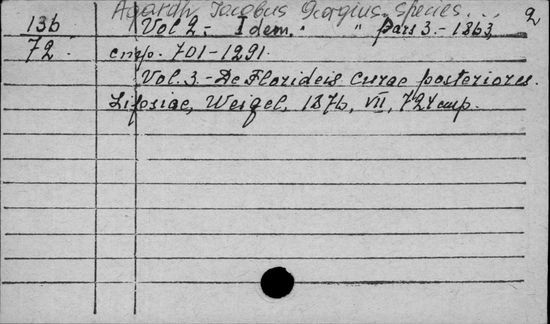 Agardh Jacobus Georgius. Species... 2
13b Vol 2. - Idem. " " Pars 3. - 1863
72. стр. 701-1291.
Vol. 3. - De Florideis Curae posteriores.
Lipsiae, Weigel, 1876, VII, 724 стр.